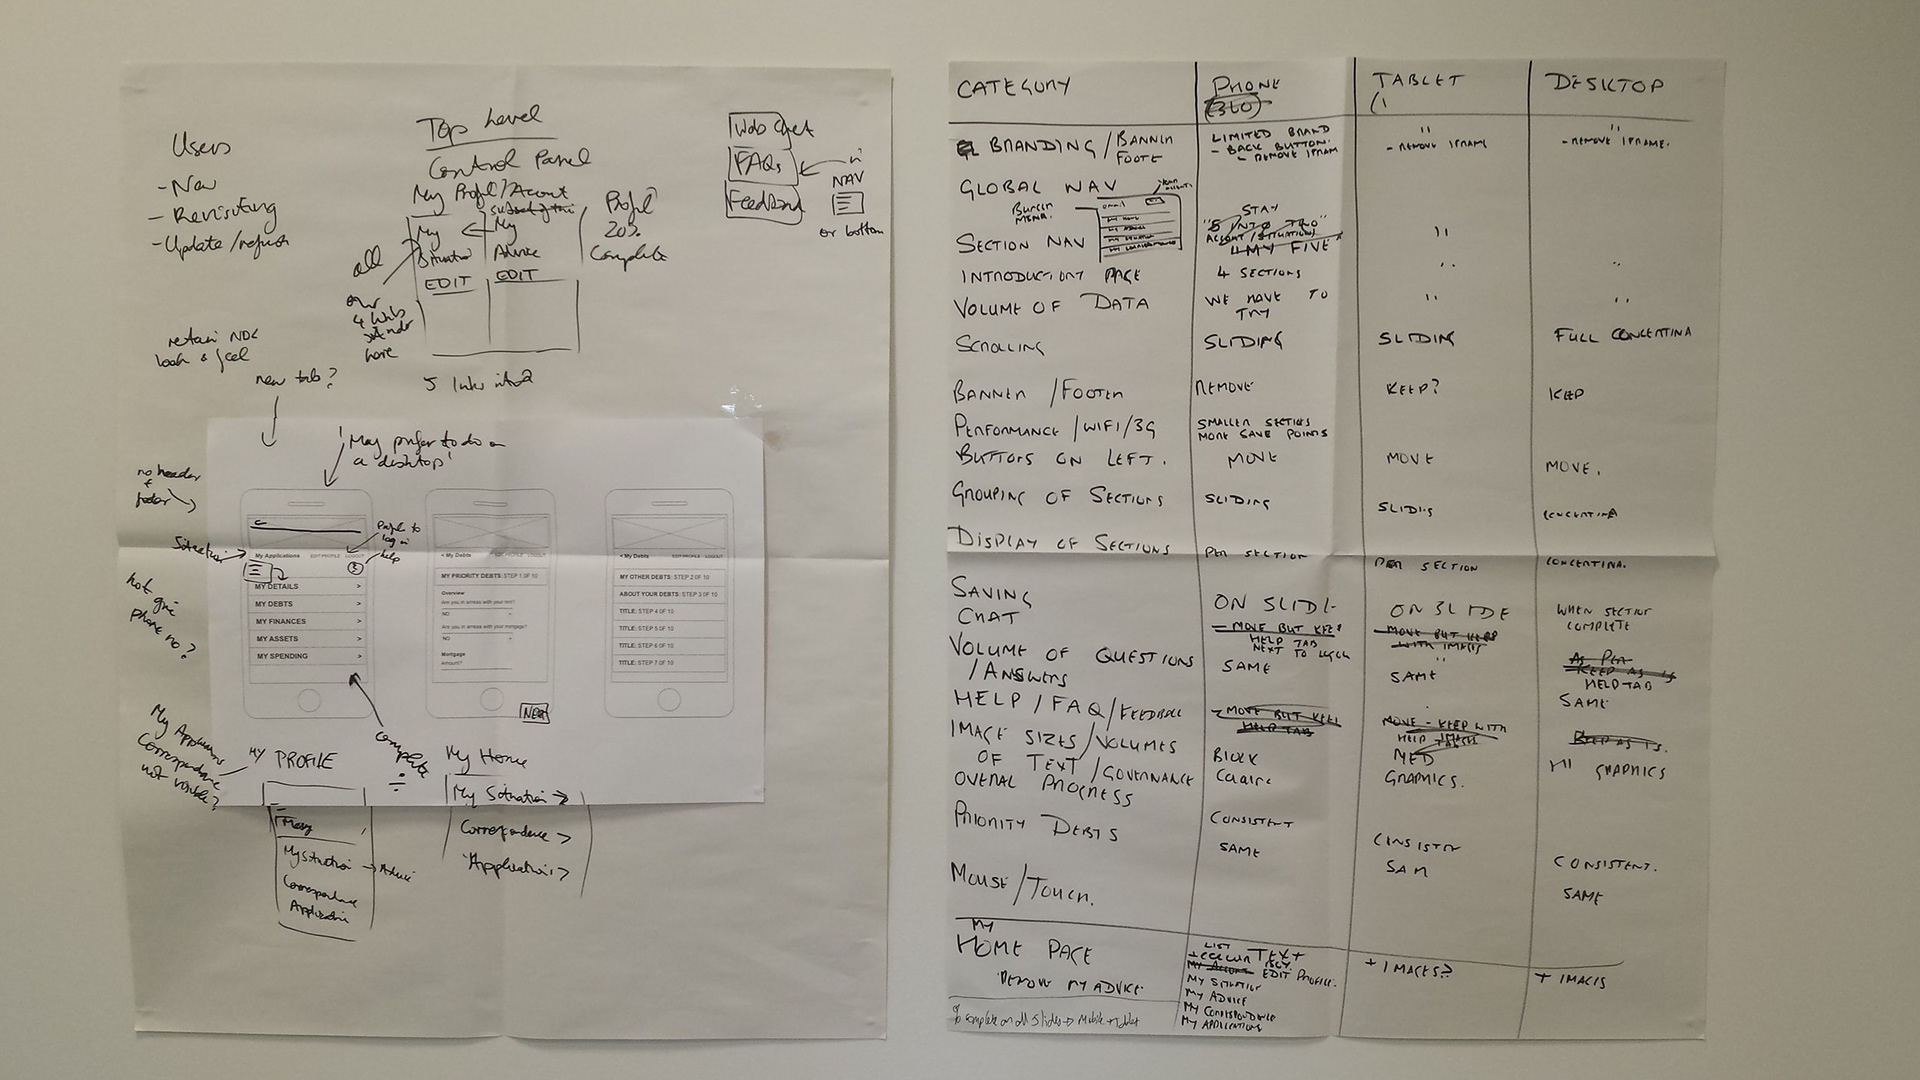 Users
- New
- Revisiting
- Update/refresh
Top Level
Control Panel
My Profile/Account
My
Situation
EDIT
My
Advice
EDIT
Profile
20%
Complete
Web Chat
FAQs
Feedback
in
NAV
or bottom
all
retain NDL
look & feel
new tab?
5 into 2
'May prefer to do on
a desktop'
no header
+
footer
Situation
Profile to
log in
help
not give
phone no?
My Applications
Correspondence
not visible?
My Applications EDIT PROFILE LOGOUT
MY DETAILS >
MY DEBTS >
MY FINANCES >
MY ASSETS >
MY SPENDING >
< My Debts EDIT PROFILE LOGOUT
MY PRIORITY DEBTS: STEP 1 OF 10
Overview
Are you in arrears with your rent?
NO
Are you in arrears with your mortgage?
NO
Mortgage
Amount?
NEXT
< My Debts EDIT PROFILE LOGOUT
MY OTHER DEBTS: STEP 2 OF 10
ABOUT YOUR DEBTS: STEP 3 OF 10
TITLE: STEP 4 OF 10
TITLE: STEP 5 OF 10
TITLE: STEP 6 OF 10
TITLE: STEP 7 OF 10
complete
MY PROFILE
My Situation → Advice
Correspondence
Application
My Home
My Situation >
Correspondence >
Application >
CATEGORY PHONE TABLET DESKTOP
(360)
BRANDING/BANNER
FOOTE
LIMITED BRAND
- BACK BUTTON.
- REMOVE IFRAM
"
- REMOVE IFRAME
"
- REMOVE IFRAME.
GLOBAL NAV
BURGER
MENU.
SECTION NAV
STAY
"5 INTO TWO"
ACCOUNT/SITUATION
4 MY FIVE
"
INTRODUCTORY PAGE 4 SECTIONS " "
VOLUME OF DATA WE HAVE TO " "
TRY
SCROLLING SLIDING SLIDING FULL CONCERTINA
BANNER/FOOTER REMOVE KEEP? KEEP
PERFORMANCE/WIFI/3G SMALLER SECTIONS
MORE SAVE POINTS
BUTTONS ON LEFT. MOVE MOVE MOVE.
GROUPING OF SECTIONS SLIDING SLIDING CONCERTINA
DISPLAY OF SECTIONS PER SECTION PER SECTION CONCERTINA.
SAVING ON SLIDE ON SLIDE WHEN SECTION
COMPLETE
CHAT MOVE BUT KEEP MOVE BUT KEEP
HELP TAB
NEXT TO LOGIN
WITH IMAGES
AS PER
KEEP AS IS
HELP TAB
VOLUME OF QUESTIONS
/ANSWERS
SAME SAME SAME
HELP/FAQ/FEEDBACK
- MOVE BUT KEEP
HELP TAB
MOVE - KEEP WITH
HELP IMAGES
KEEP AS IS.
IMAGE SIZES/VOLUMES
OF TEXT/GOVERNANCE
BLOCK
COLOURS
MED
GRAPHICS.
HI GRAPHICS
OVERAL PROGRESS CONSISTENT CONSISTEN CONSISTENT.
PRIORITY DEBTS SAME SAM SAME
MOUSE/TOUCH.
MY
HOME PAGE
REMOVE MY ADVICE
LIST
TEXT
MY ACCOUNT EDIT PROFILE.
MY SITUATION
MY ADVICE
MY CORRESPONDENCE
MY APPLICATIONS
+ IMAGES?
+ IMAGES
% complete on all slides → Mobile + Tablet